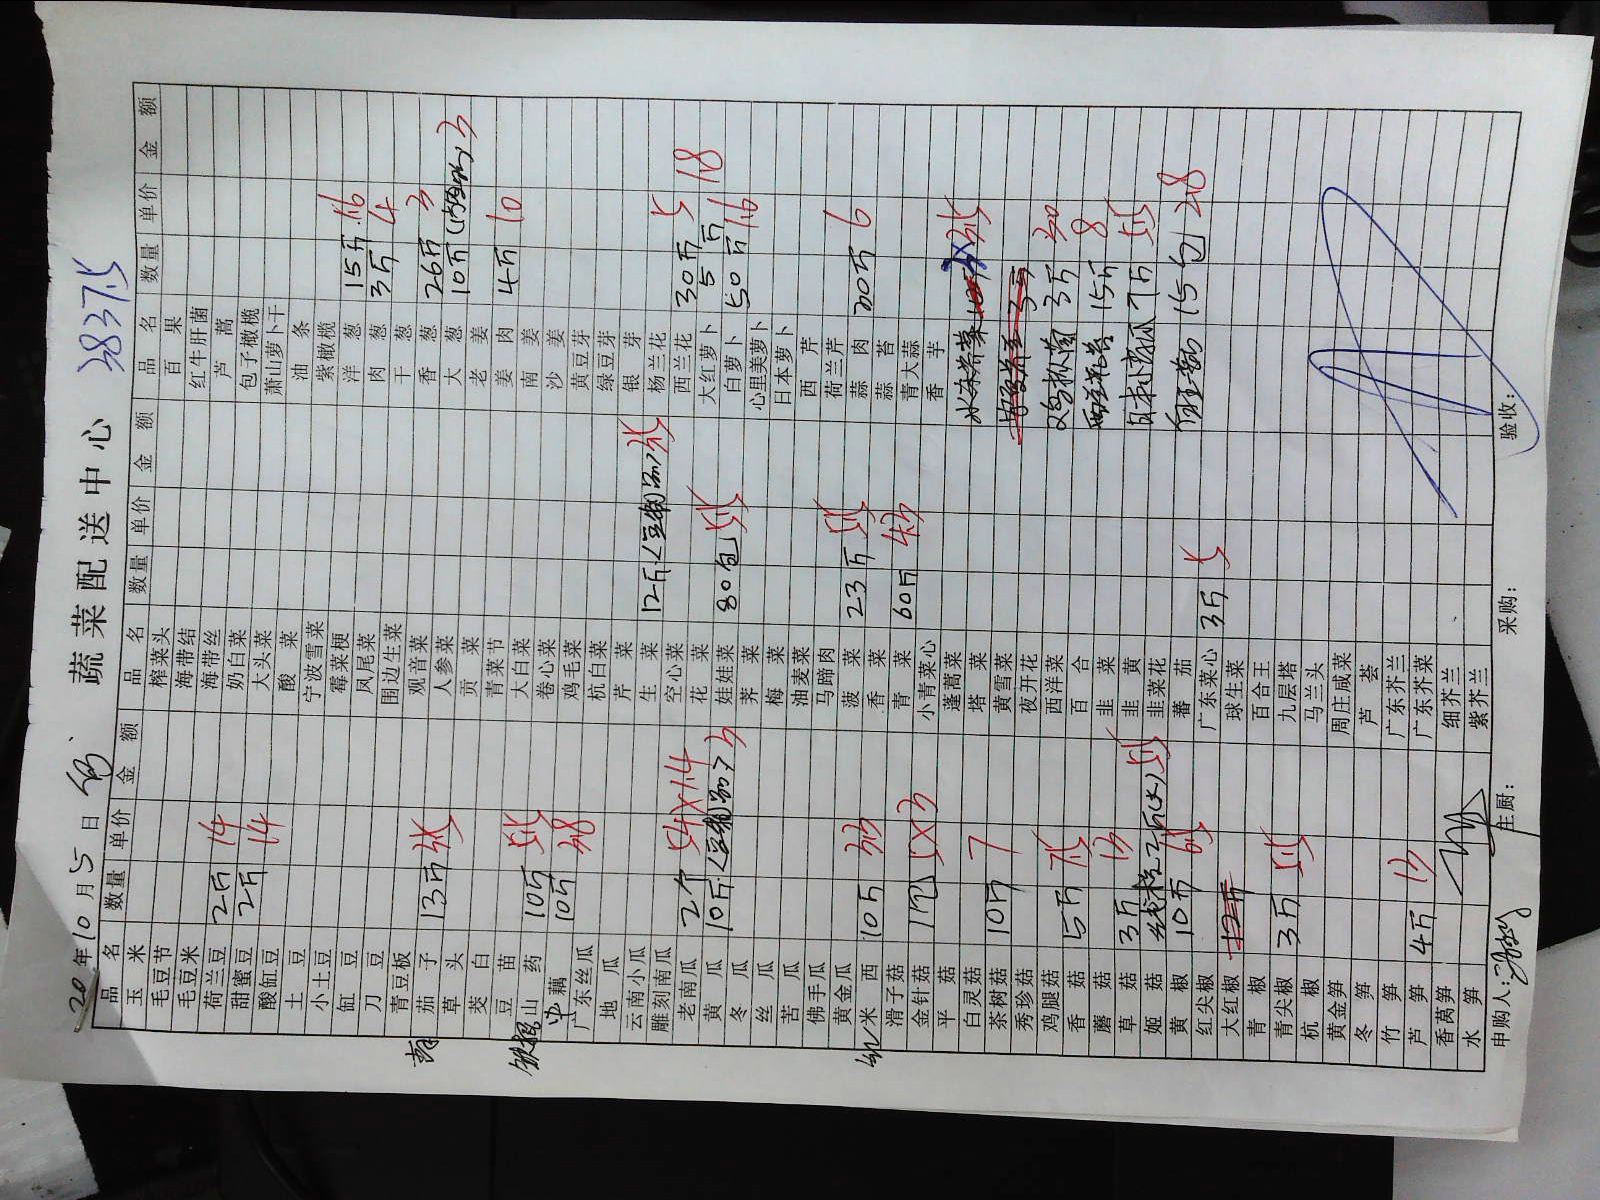 蔬菜配送中心
20 年 10 月 5 日
28375
品名 数量 单价 金额
玉米
毛豆节
毛豆米
荷兰豆 2斤 14
甜蜜豆 2斤 14
酸豇豆
土豆
小土豆
豇豆
刀豆
青豆板
茄子 13斤
草头
茭白
豆苗
山药 10斤
藕 10斤
广东丝瓜
地瓜
云南小瓜
雕刻南瓜
老南瓜 2个 54×1.4
黄瓜 10斤 3
冬瓜
丝瓜
苦瓜
佛手瓜
黄金瓜
米西 10斤
滑子菇
金针菇 1包 5×3
平菇
白灵菇
茶树菇 10斤 7
秀珍菇
鸡腿菇
香菇 5斤
蘑菇
草菇 3斤 13
姬菇
黄椒 10斤
红尖椒
大红椒
青椒
青尖椒 3斤
杭椒
黄金笋
冬笋
竹笋
芦笋 4斤 13
香莴笋
水笋
品名 数量 单价 金额
榨菜头
海带结
海带丝
奶白菜
大头菜
酸菜
宁波雪菜
霉菜梗
凤尾菜
围边生菜
观音菜
人参菜
贡菜
青菜节
大白菜
卷心菜
鸡毛菜
杭白菜
芹菜
生菜 12斤
空心菜
花菜
娃娃菜 80包
荠菜
梅菜
油麦菜
马蹄肉
菠菜 23斤
香菜
青菜 60斤
小青菜心
蓬蒿菜
塔菜
黄雪菜
夜开花
西洋菜
百合
韭菜
韭黄
韭菜花
蕃茄
广东菜心 3斤 5
球生菜
百合王
九层塔
马兰头
周庄咸菜
芦荟
广东芥兰
广东芥菜
细芥兰
紫芥兰
品名 数量 单价 金额
百果
红牛肝菌
芦蒿
包子橄榄
萧山萝卜干
油条
紫橄榄
洋葱 15斤 1.6
肉葱 3斤 4
干葱
香葱 26斤 3
大葱 10斤 3
老姜
姜肉 4斤 10
南姜
沙姜
黄豆芽
绿豆芽
银芽
杨兰花
西兰花 30斤 5
大红萝卜 5斤 18
白萝卜 50斤 1.6
心里美萝卜
日本萝卜
西芹
荷兰芹
蒜肉 20斤 6
蒜苔
青大蒜
香芋
鸡枞菌 3斤
15斤 8
7斤
15包 2.8
申购人:
主厨:
采购:
验收: